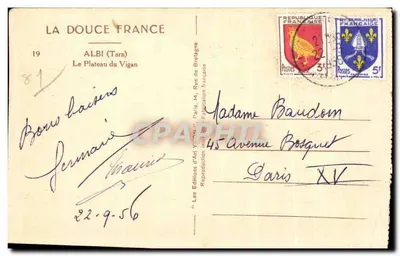 LA DOUCE FRANCE
19
ALBI (Tarn)
Le Plateau du Vigan
81
Bons baisers
Germaine
Maurice
22-9-56
Les Editions d'Art
Paris, 14, Rue de Bretagne
Reproduction
Fabrication Française
REPUBLIQUE FRANÇAISE
3F
REPUBLIQUE FRANÇAISE
5F
Madame Baudoin
45 Avenue Bosquet
Paris XV
CPARAMA